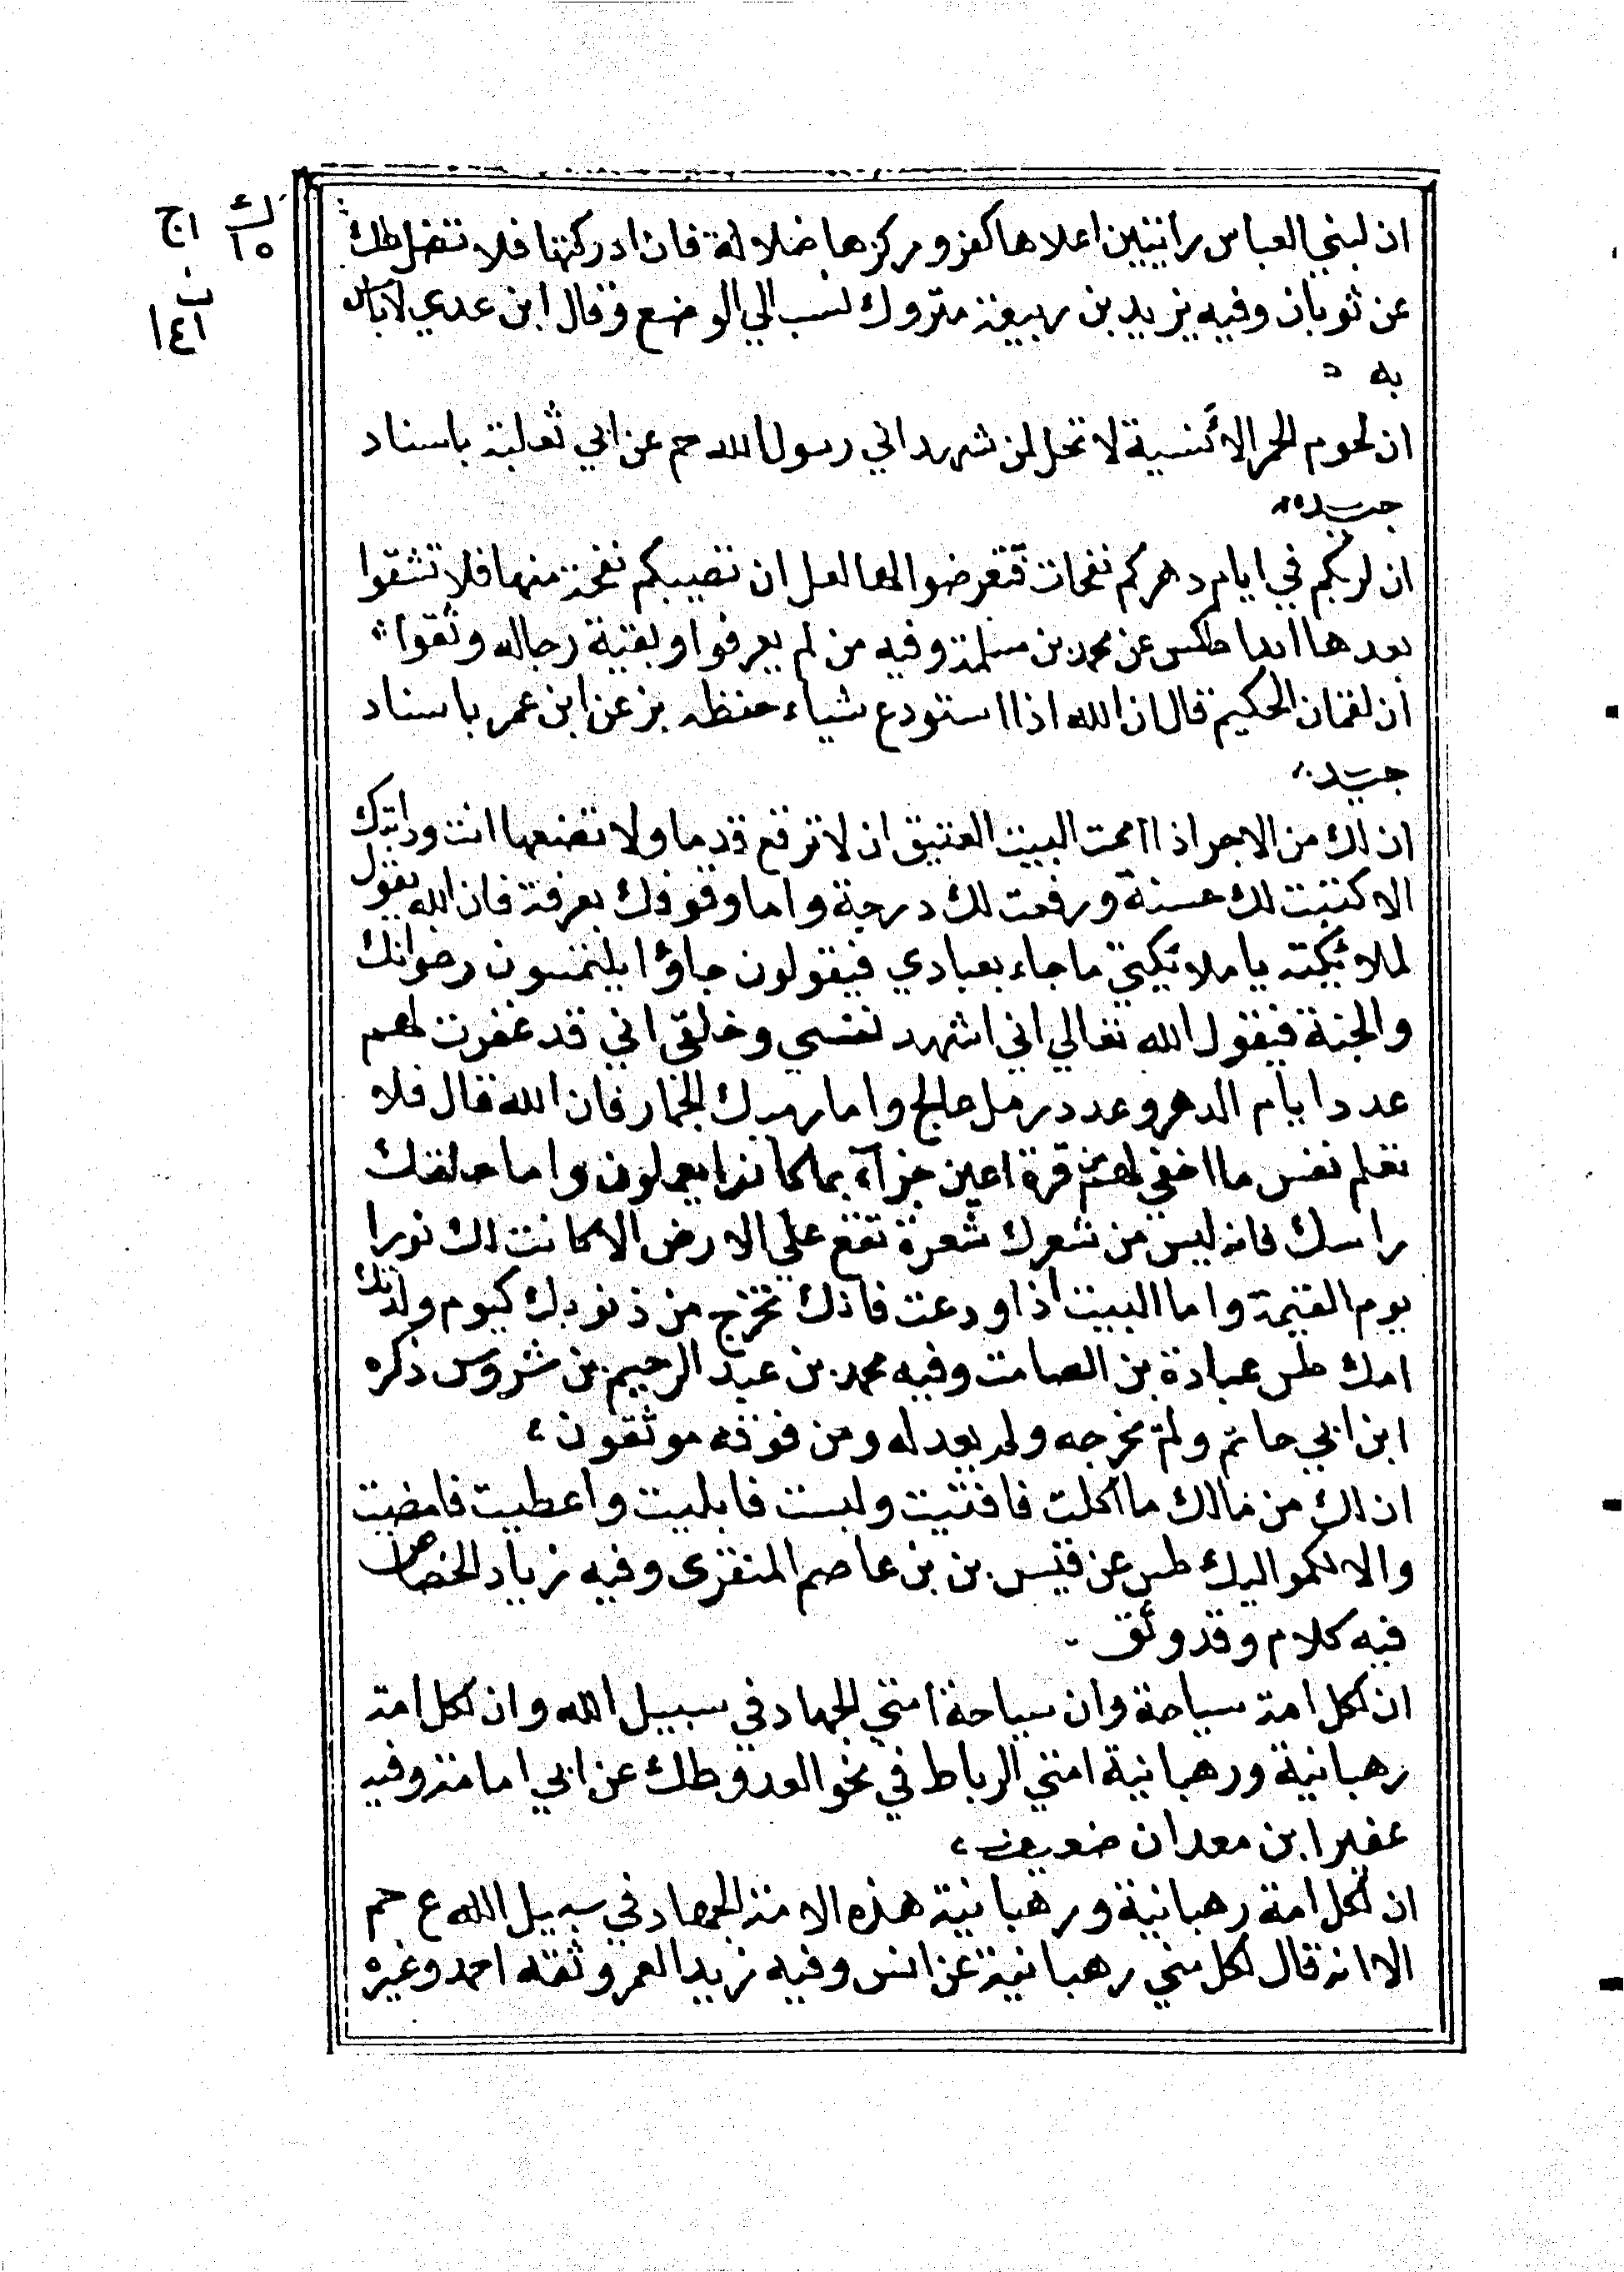 ك ١ج
١٥
ب
١٤١
ان لبني العباس رايتين اعلاها كفر ومركزها ضلالة فان ادركتها فلا تضل طك
عن ثوبان وفيه يزيد بن ربيعة متروك نسب الي الوضع وقال ابن عدي لاباس
به
ان لحوم الحمر الانسية لا تحل لمن شهد اني رسول الله حم عن ابي ثعلبة باسناد
جيد
ان لربكم في ايام دهركم نفحات فتعرضوا لها لعل ان تصيبكم نفحة منها فلا تشقوا
بعدها ابدا طكس عن محمد بن مسلمة وفيه من لم يعرفوا وبقية رجاله وثقوا
ان لقمان الحكيم قال ان الله اذا استودع شياء حفظه بز عن ابن عمر باسناد
جيد
ان لك من الاجر اذا اممت البيت العتيق ان لا ترفع قدما ولا تضعها انت ودابتك
الا كتبت لك حسنة ورفعت لك درجة واما وقوفك بعرفة فان الله يقول
لملائكته يا ملائكتي ما جاء بعبادي فيقولون جاؤا يلتمسون رضوانك
والجنة فيقول الله تعالي اني اشهد نفسي وخلقي اني قد غفرت لهم
عدد ايام الدهر وعدد رمل عالج واما رميك الجمار فان الله قال فلا
تعلم نفس ما اخفي لهم من قرة اعين جزآء بما كانوا يعملون واما حلقك
راسك فانه ليس من شعرك شعرة تقع علي الارض الا كانت لك نورا
يوم القيمة واما البيت اذا ودعت فانك تخرج من ذنوبك كيوم ولدتك
امك طس عبادة بن الصامت وفيه محمد بن عبد الرحيم بن شروس ذكره
ابن ابي حاتم ولم يخرجه ولم يعدله ومن فوقه موثقون
ان لك من مالك ما اكلت فافنيت ولبست فابليت واعطيت فامضيت
والا لكمواليك طس عن قيس بن بن عاصم المنقرى وفيه زياد الخصاص
فيه كلام وقد وثق
ان لكل امة سياحة وان سياحة امتي الجهاد في سبيل الله وان لكل امة
رهبانية ورهبانية امتي الرباط في نحو العدو طك عن ابي امامة وفيه
عفير ابن معدان ضعيف
ان لكل امة رهبانية ورهبانية هذه الامة الجهاد في سبيل الله ع حم
الا انه قال لكل نبي رهبانية عن انس وفيه زيد العمر وثقه احمد وغيره